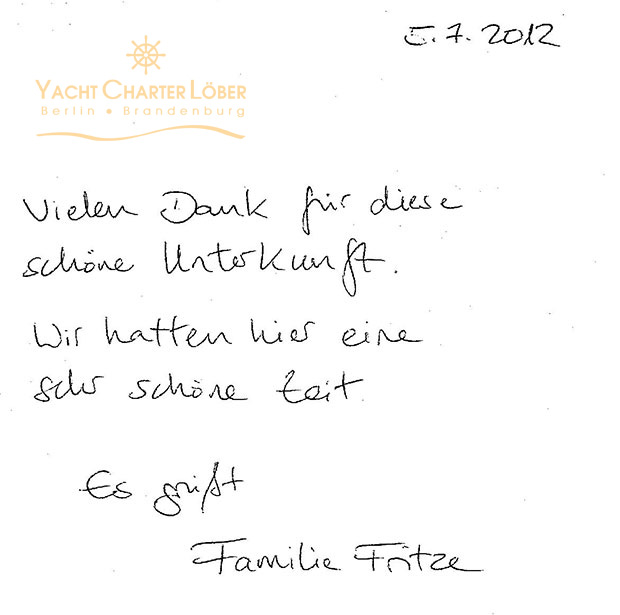 5.7.2012
YACHT CHARTER LÖBER
Berlin • Brandenburg
Vielen Dank für diese
schöne Unterkunft.
Wir hatten hier eine
sehr schöne Zeit
Es grüßt
Familie Fritze